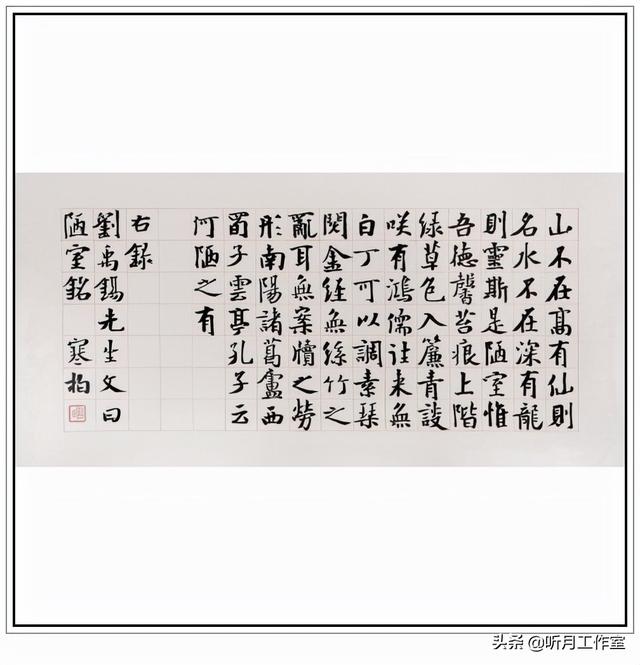 山不在高有仙則
名水不在深有龍
則靈斯是陋室惟
吾德馨苔痕上階
緑草色入簾青談
咲有鴻儒往来無
白丁可以調素琴
閱金経無絲竹之
亂耳無案牘之勞
形南陽諸葛廬西
蜀子雲亭孔子云
何陋之有
右錄
劉禹錫先生文曰
陋室銘 寒
头条 @听月工作室